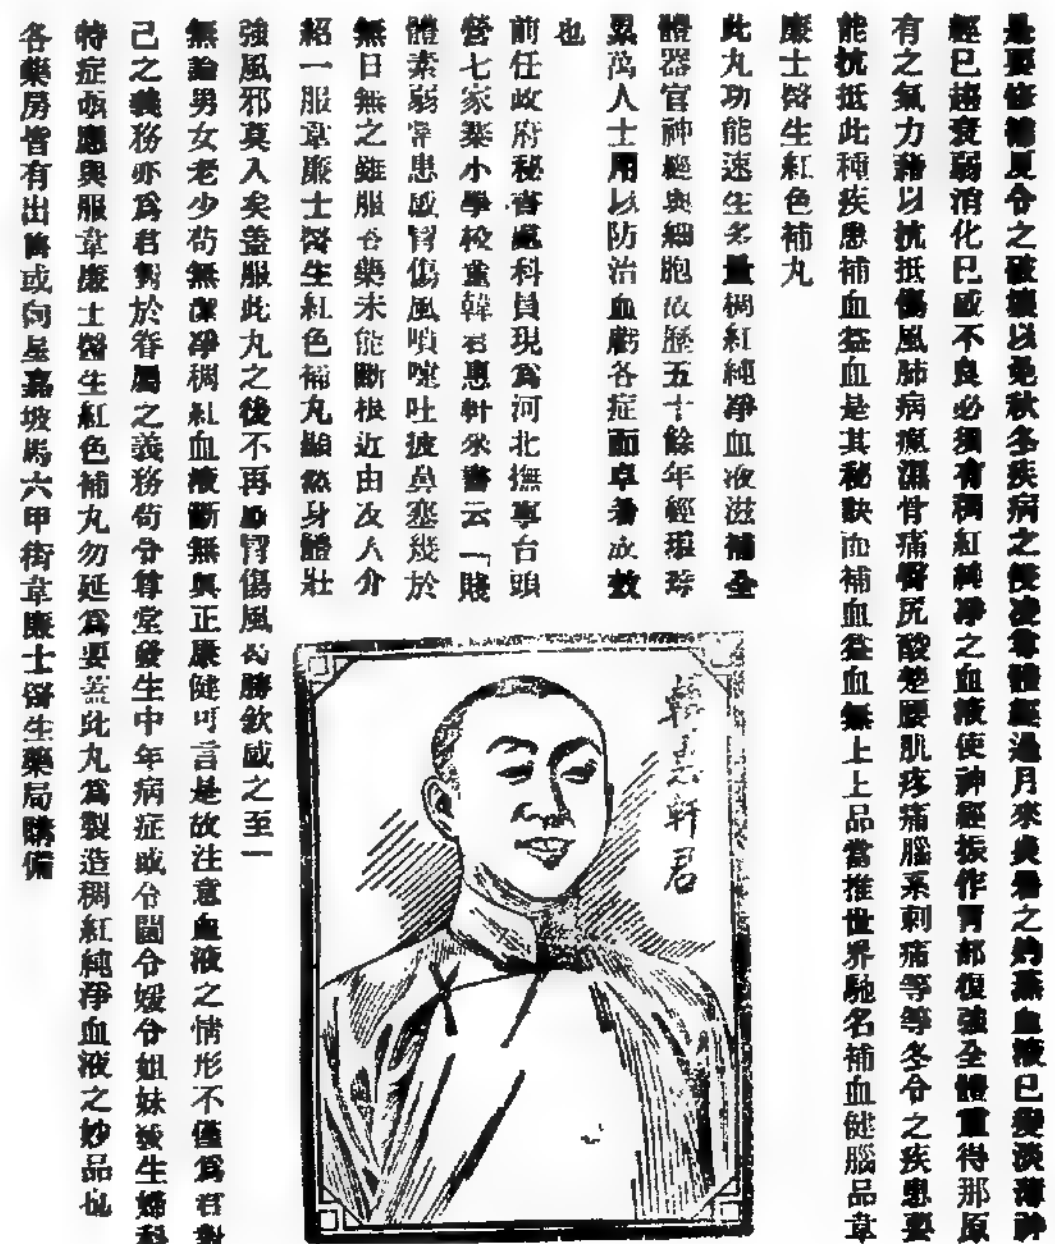 是要修補夏令之破壞以免秋冬疾病之侵凌尊體經過月來炎暑之灼蒸血液已變淡薄神
經已趨衰弱消化已感不良必須有稠紅純淨之血液使神經振作胃部復強全體重得那原
有之氣力藉以抗抵傷風肺病瘋濕骨痛臀尻酸楚腰肌疼痛腦系刺痛等等冬令之疾患要
能抗抵此種疾患補血益血是其秘訣而補血益血無上上品當推世界馳名補血健腦品韋
廉士醫生紅色補丸
此丸功能速生多量稠紅純淨血液滋補全
體器官神經與細胞故歷五十餘年經環球
累萬人士用以防治血虧各症而卓著成效
也
前任政府秘書處科員現為河北撫寧台頭
營七家寨小學校董韓君惠軒來書云「賤
體素弱常患感冒傷風噴嚏吐痰鼻塞幾於
無日無之雖服各藥未能斷根近由友人介
紹一服韋廉士醫生紅色補丸顯然身體壯
強風邪莫入矣蓋服此丸之後不再感冒傷風曷勝欽感之至」
韓惠軒君
無論男女老少苟無潔淨稠紅血液斷無真正康健可言是故注意血液之情形不僅為君對
己之義務亦為君對於眷屬之義務苟令尊堂發生中年病症或令閫令嫒令姐妹發生婦科
特症亦應與服韋廉士醫生紅色補丸勿延為要蓋此丸為製造稠紅純淨血液之妙品也
各藥房皆有出售或向星嘉坡馬六甲街韋廉士醫生藥局購備